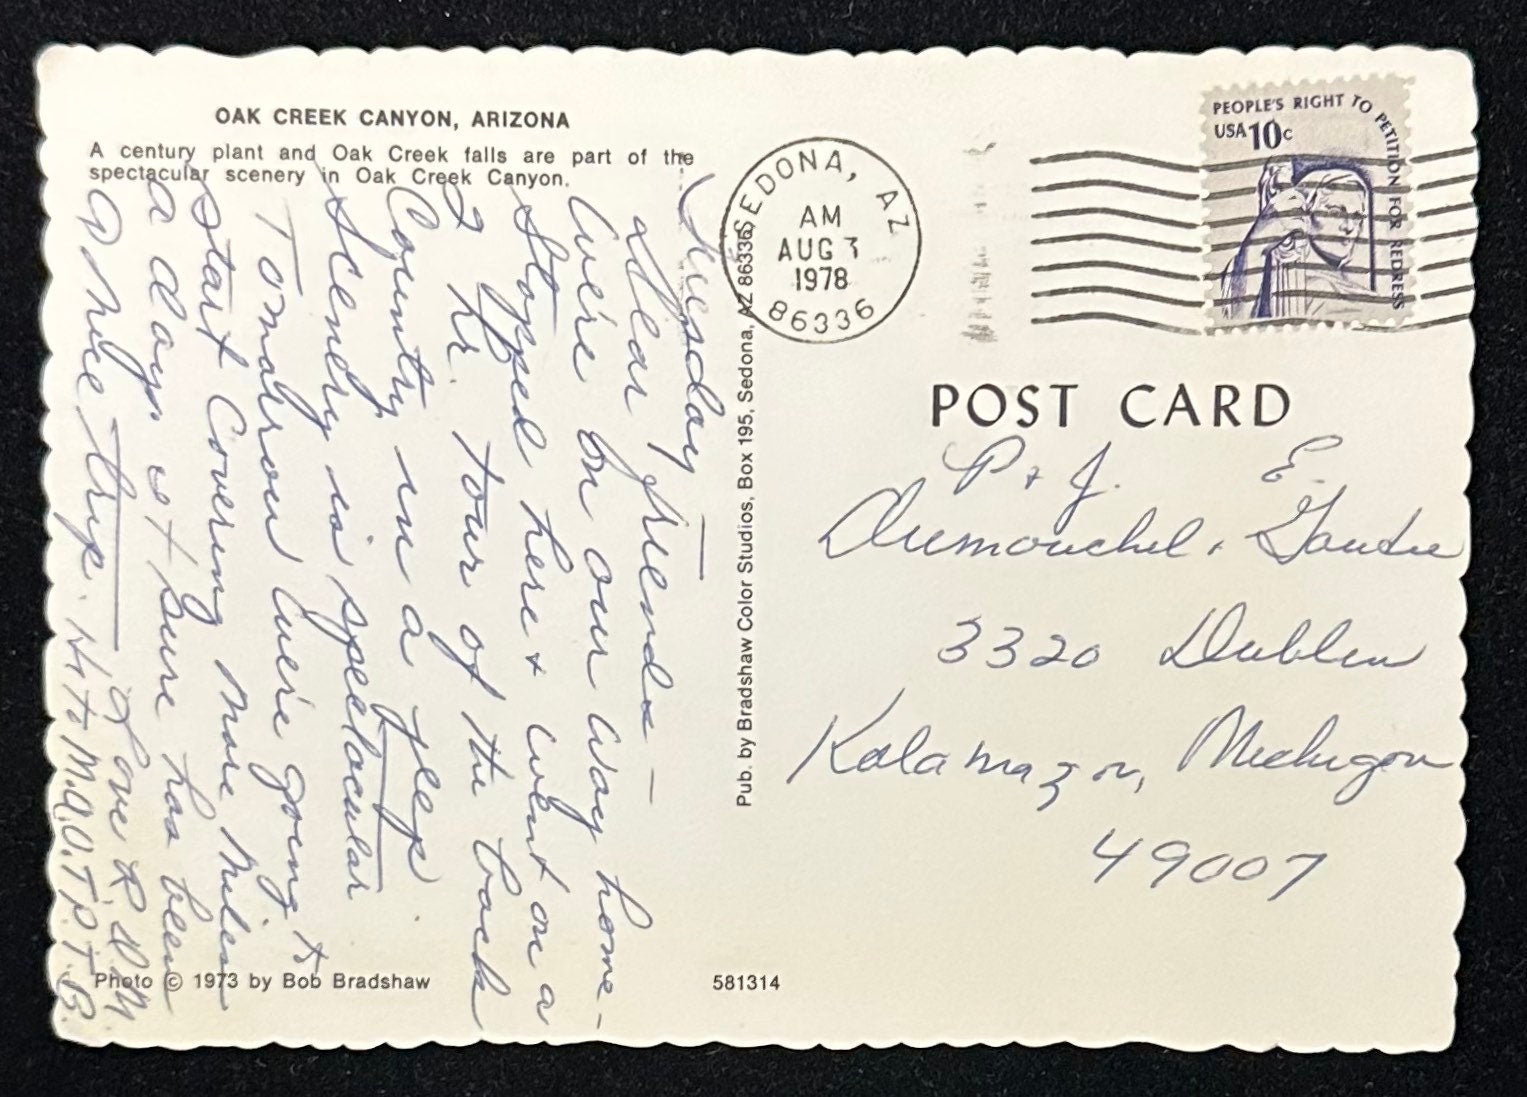 OAK CREEK CANYON, ARIZONA
A century plant and Oak Creek falls are part of the
spectacular scenery in Oak Creek Canyon.
Tuesday —
Dear friends —
We're on our way home –
Stopped here & went on a
2 hr. tour of the back
Country in a jeep.
Scenery is spectacular
Tomorrow we're going to
start Covering more miles
a day. it sure has been
a nice trip.
Love R, D, M
Hi to M.A.O.T.P.T.B.
Photo © 1973 by Bob Bradshaw
581314
Pub. by Bradshaw Color Studios, Box 195, Sedona, AZ 86336
SEDONA, AZ
AM
AUG 3
1978
86336
PEOPLE'S RIGHT TO PETITION FOR REDRESS
USA 10c
POST CARD
P & J. E.
Dumouchel &
3320 Dublin
Kalamazoo, Michigan
49007